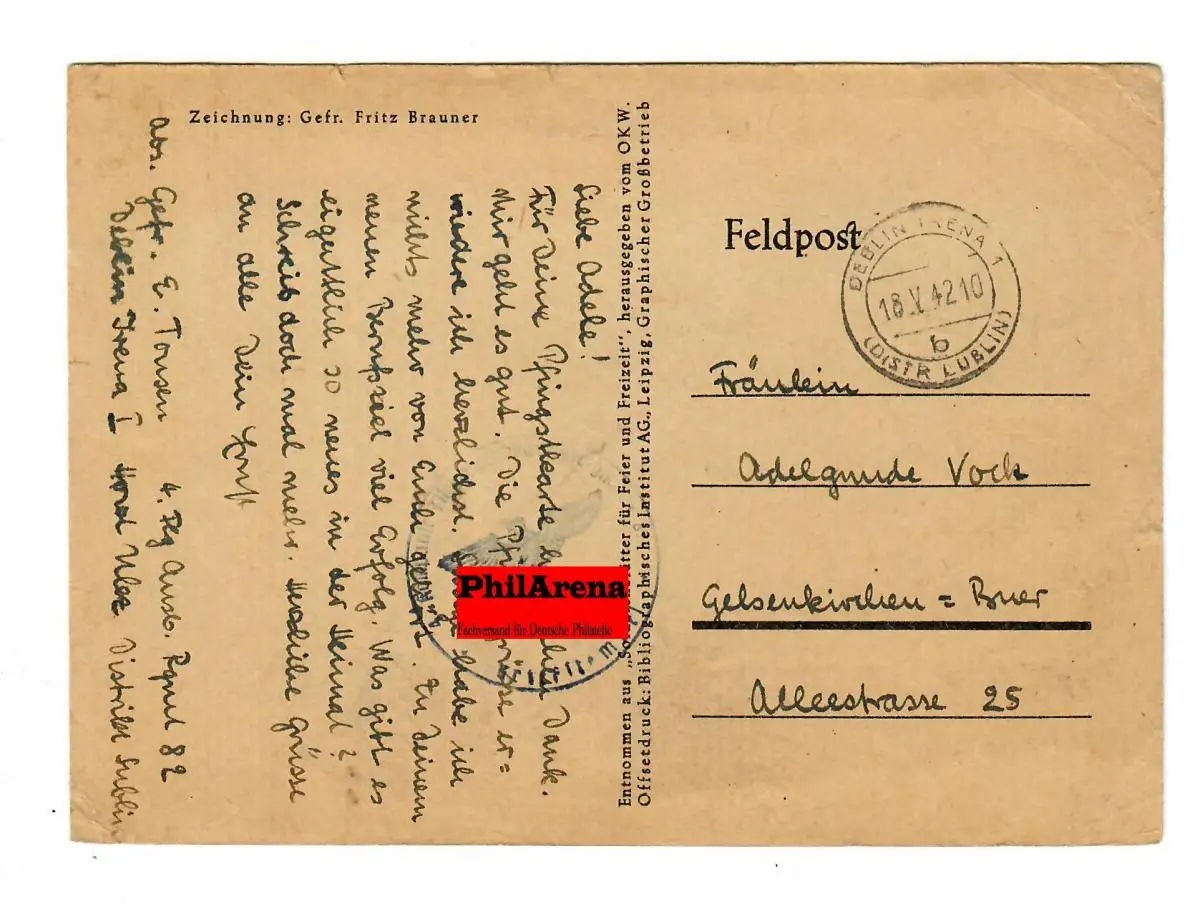 Zeichnung: Gefr. Fritz Brauner
Abs. Gefr. E. Tonsen 4. Flg Ausb. Rgmt 82
Deblin Irena I Distrikt Lublin
Liebe Adele!
Für Deine Pfingstkarte Dank.
Mir geht es gut. Die er=
widere ich herzlichst. habe ich
nichts mehr von Euch gehört. Zu Deinem
neuen Berufsziel viel Erfolg. Was gibt es
eigentlich so neues in der Heimat?
Schreib doch mal mehr. Herzliche Grüsse
an alle Dein Horst
Entnommen aus „So für Feier und Freizeit“, herausgegeben vom OKW.
Offsetdruck: Bibliographisches Institut AG., Leipzig, Graphischer Großbetrieb
PhilArena
Fachversand für Deutsche Philatelie
Feldpost
DEBLIN IRENA 1
18.V.42.10
b
(DISTR LUBLIN)
Fräulein
Adelgunde Vock
Gelsenkirchen = Buer
Alleestrasse 25